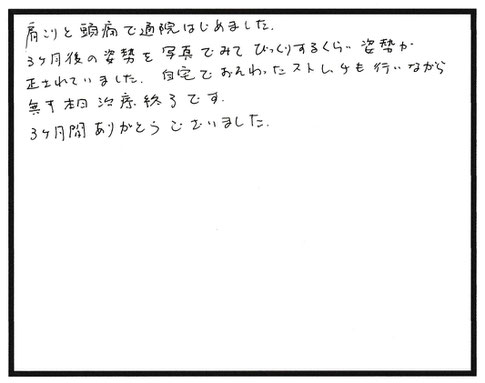 肩こりと頭痛で通院はじめました.
3ヶ月後の姿勢を写真でみてびっくりするくらい姿勢が
正されていました. 自宅でおそわったストレッチも行いながら
無事本日治療終了です.
3ヶ月間ありがとうございました.